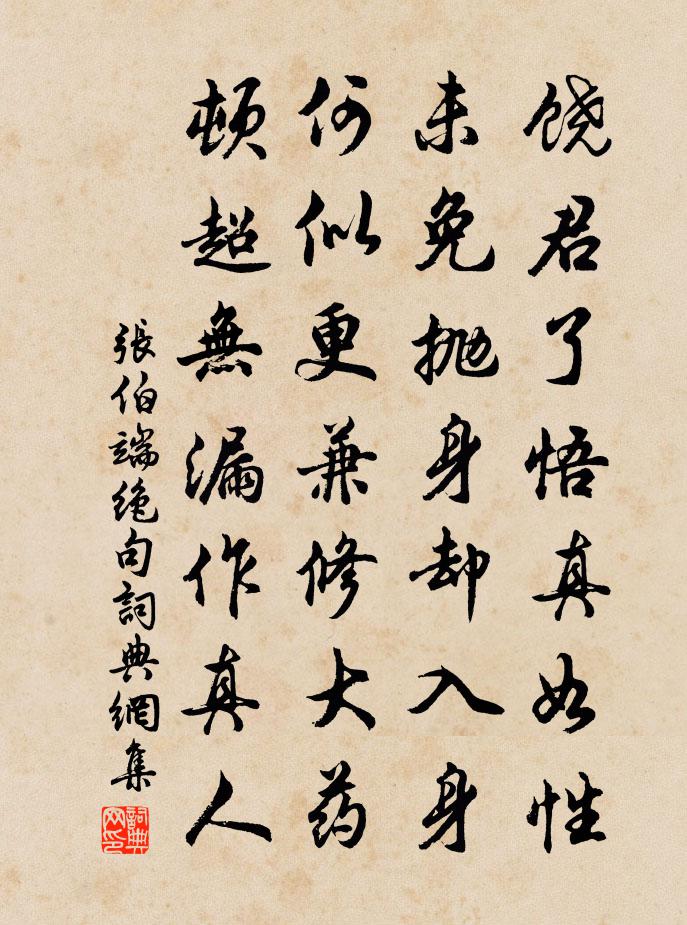 饶君了悟真如性
未免抛身却入身
何似更兼修大药
顿超無漏作真人
張伯端絶句詞典網集
詞典网印